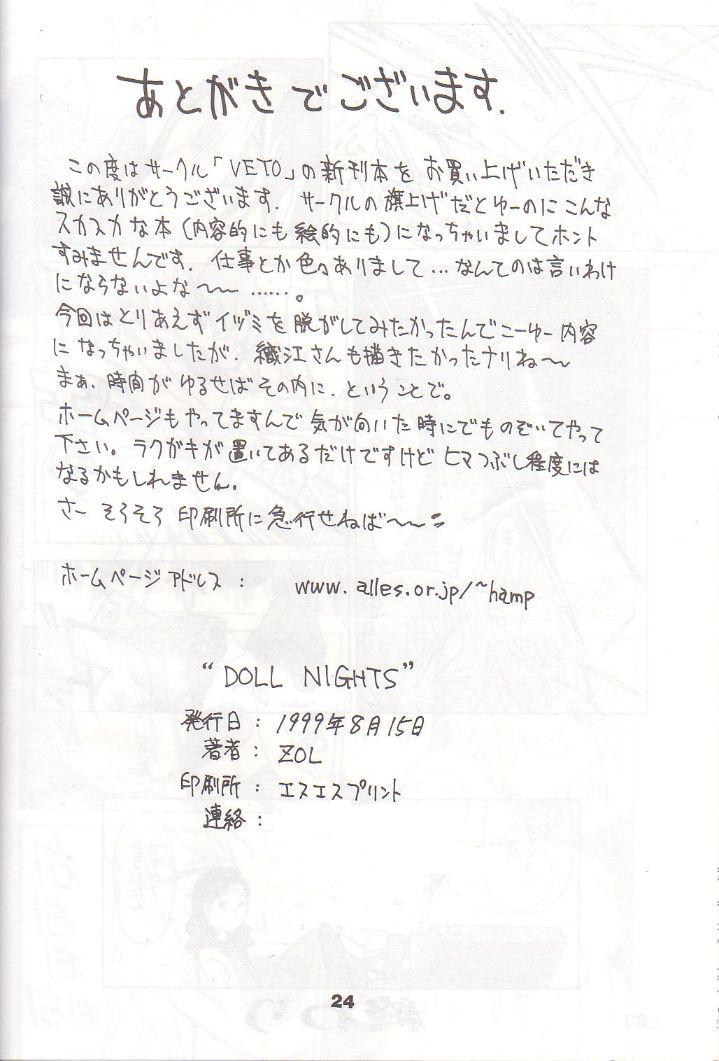 あとがきでございます.
この度はサークル「VETO」の新刊本をお買い上げいただき
誠にありがとうございます. サークルの旗上げだとゆーのにこんな
スカスカな本(内容的にも絵的にも)になっちゃいましてホント
すみませんです. 仕事とか色々ありまして…なんてのは言いわけ
にならないよな〜〜……。
今回はとりあえずイヅミを脱がしてみたかったんでこーゆー内容
になっちゃいましたが. 織江さんも描きたかったナリね〜
まぁ. 時間がゆるせばその内に. ということで。
ホームページもやってますんで気が向いた時にでものぞいてやって
下さい。ラクガキが置いてあるだけですけどヒマつぶし程度には
なるかもしれません。
さー そろそろ印刷所に急行せねば〜〜
ホームページアドレス : www.alles.or.jp/~hamp
“DOLL NIGHTS”
発行日 : 1999年8月15日
著者 : ZOL
印刷所 : エスエスプリント
連絡 :
24